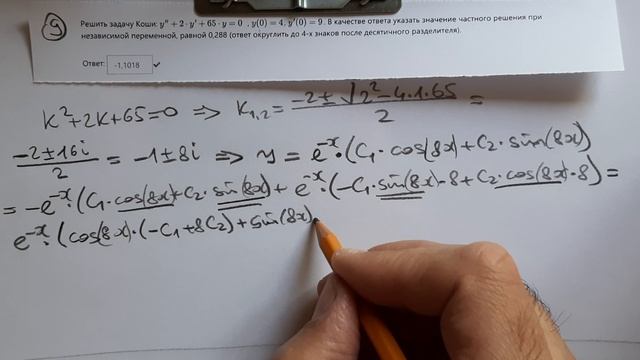 9
Решить задачу Коши: y'' + 2 · y' + 65 · y = 0 , y(0) = 4, y'(0) = 9. В качестве ответа указать значение частного решения при
независимой переменной, равной 0,288 (ответ округлить до 4-х знаков после десятичного разделителя).
Ответ: -1,1018 ✓
K²+2K+65=0 => K₁,₂ = (-2±√(2²-4·1·65))/2 =
(-2±16i)/2 = -1±8i => y = e⁻ˣ·(C₁·cos(8x)+C₂·sin(8x))
= -e⁻ˣ·(C₁·cos(8x)+C₂·sin(8x)) + e⁻ˣ·(-C₁·sin(8x)·8+C₂·cos(8x)·8) =
e⁻ˣ·(cos(8x)·(-C₁+8C₂)+sin(8x)·